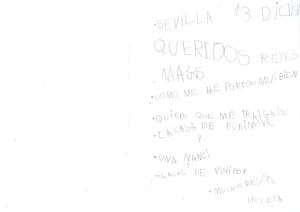 ·SEVILLA 13 DICIEM
QUERIDOS REYES
MAGOS
·COMO ME HE PORTDO MUI BIEN
·QUIERO QUE ME TRAIGAIS:
-LA CASA DE
Y
-UNA NANCI
-LACOS DE PINIPON
·MUCHOS BESOS
VIOLETA